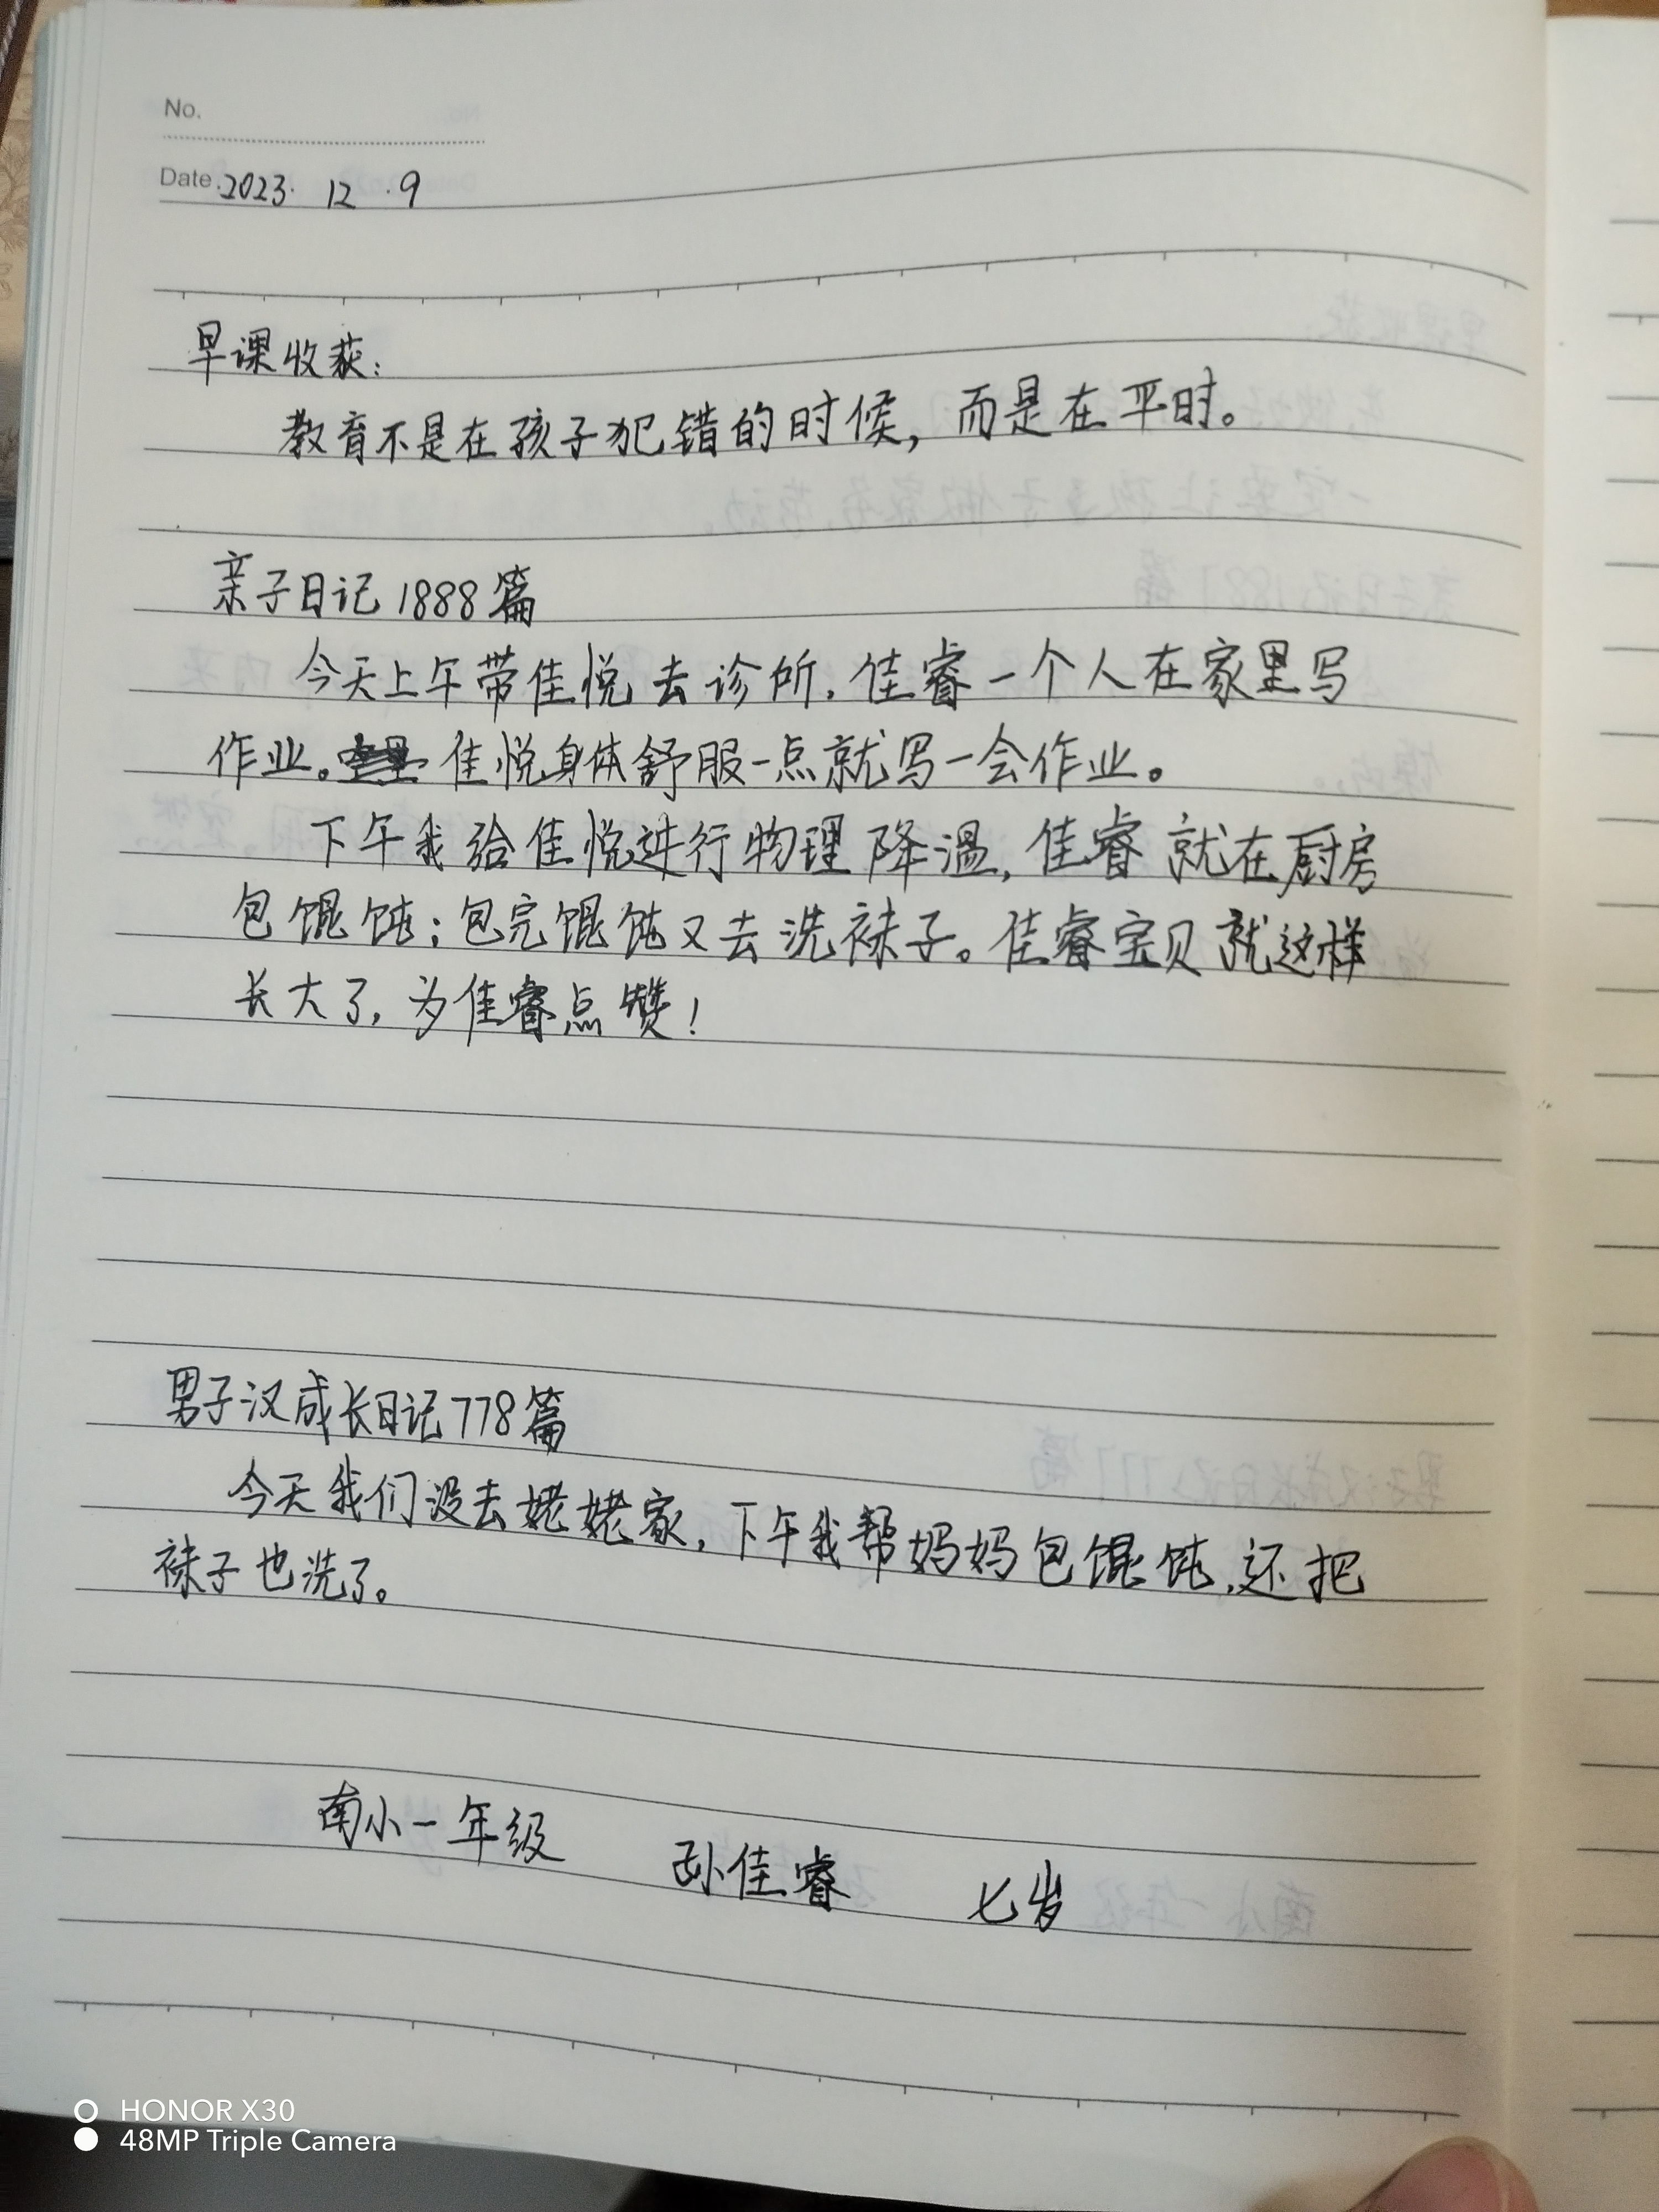 No.
Date. 2023. 12 .9
早课收获：
教育不是在孩子犯错的时候，而是在平时。
亲子日记1888篇
今天上午带佳悦去诊所，佳睿一个人在家里写
作业。佳悦身体舒服一点就写一会作业。
下午我给佳悦进行物理降温，佳睿就在厨房
包馄饨；包完馄饨又去洗袜子。佳睿宝贝就这样
长大了，为佳睿点赞！
男子汉成长日记778篇
今天我们没去姥姥家，下午我帮妈妈包馄饨，还把
袜子也洗了。
南小一年级 孙佳睿 七岁
HONOR X30
48MP Triple Camera